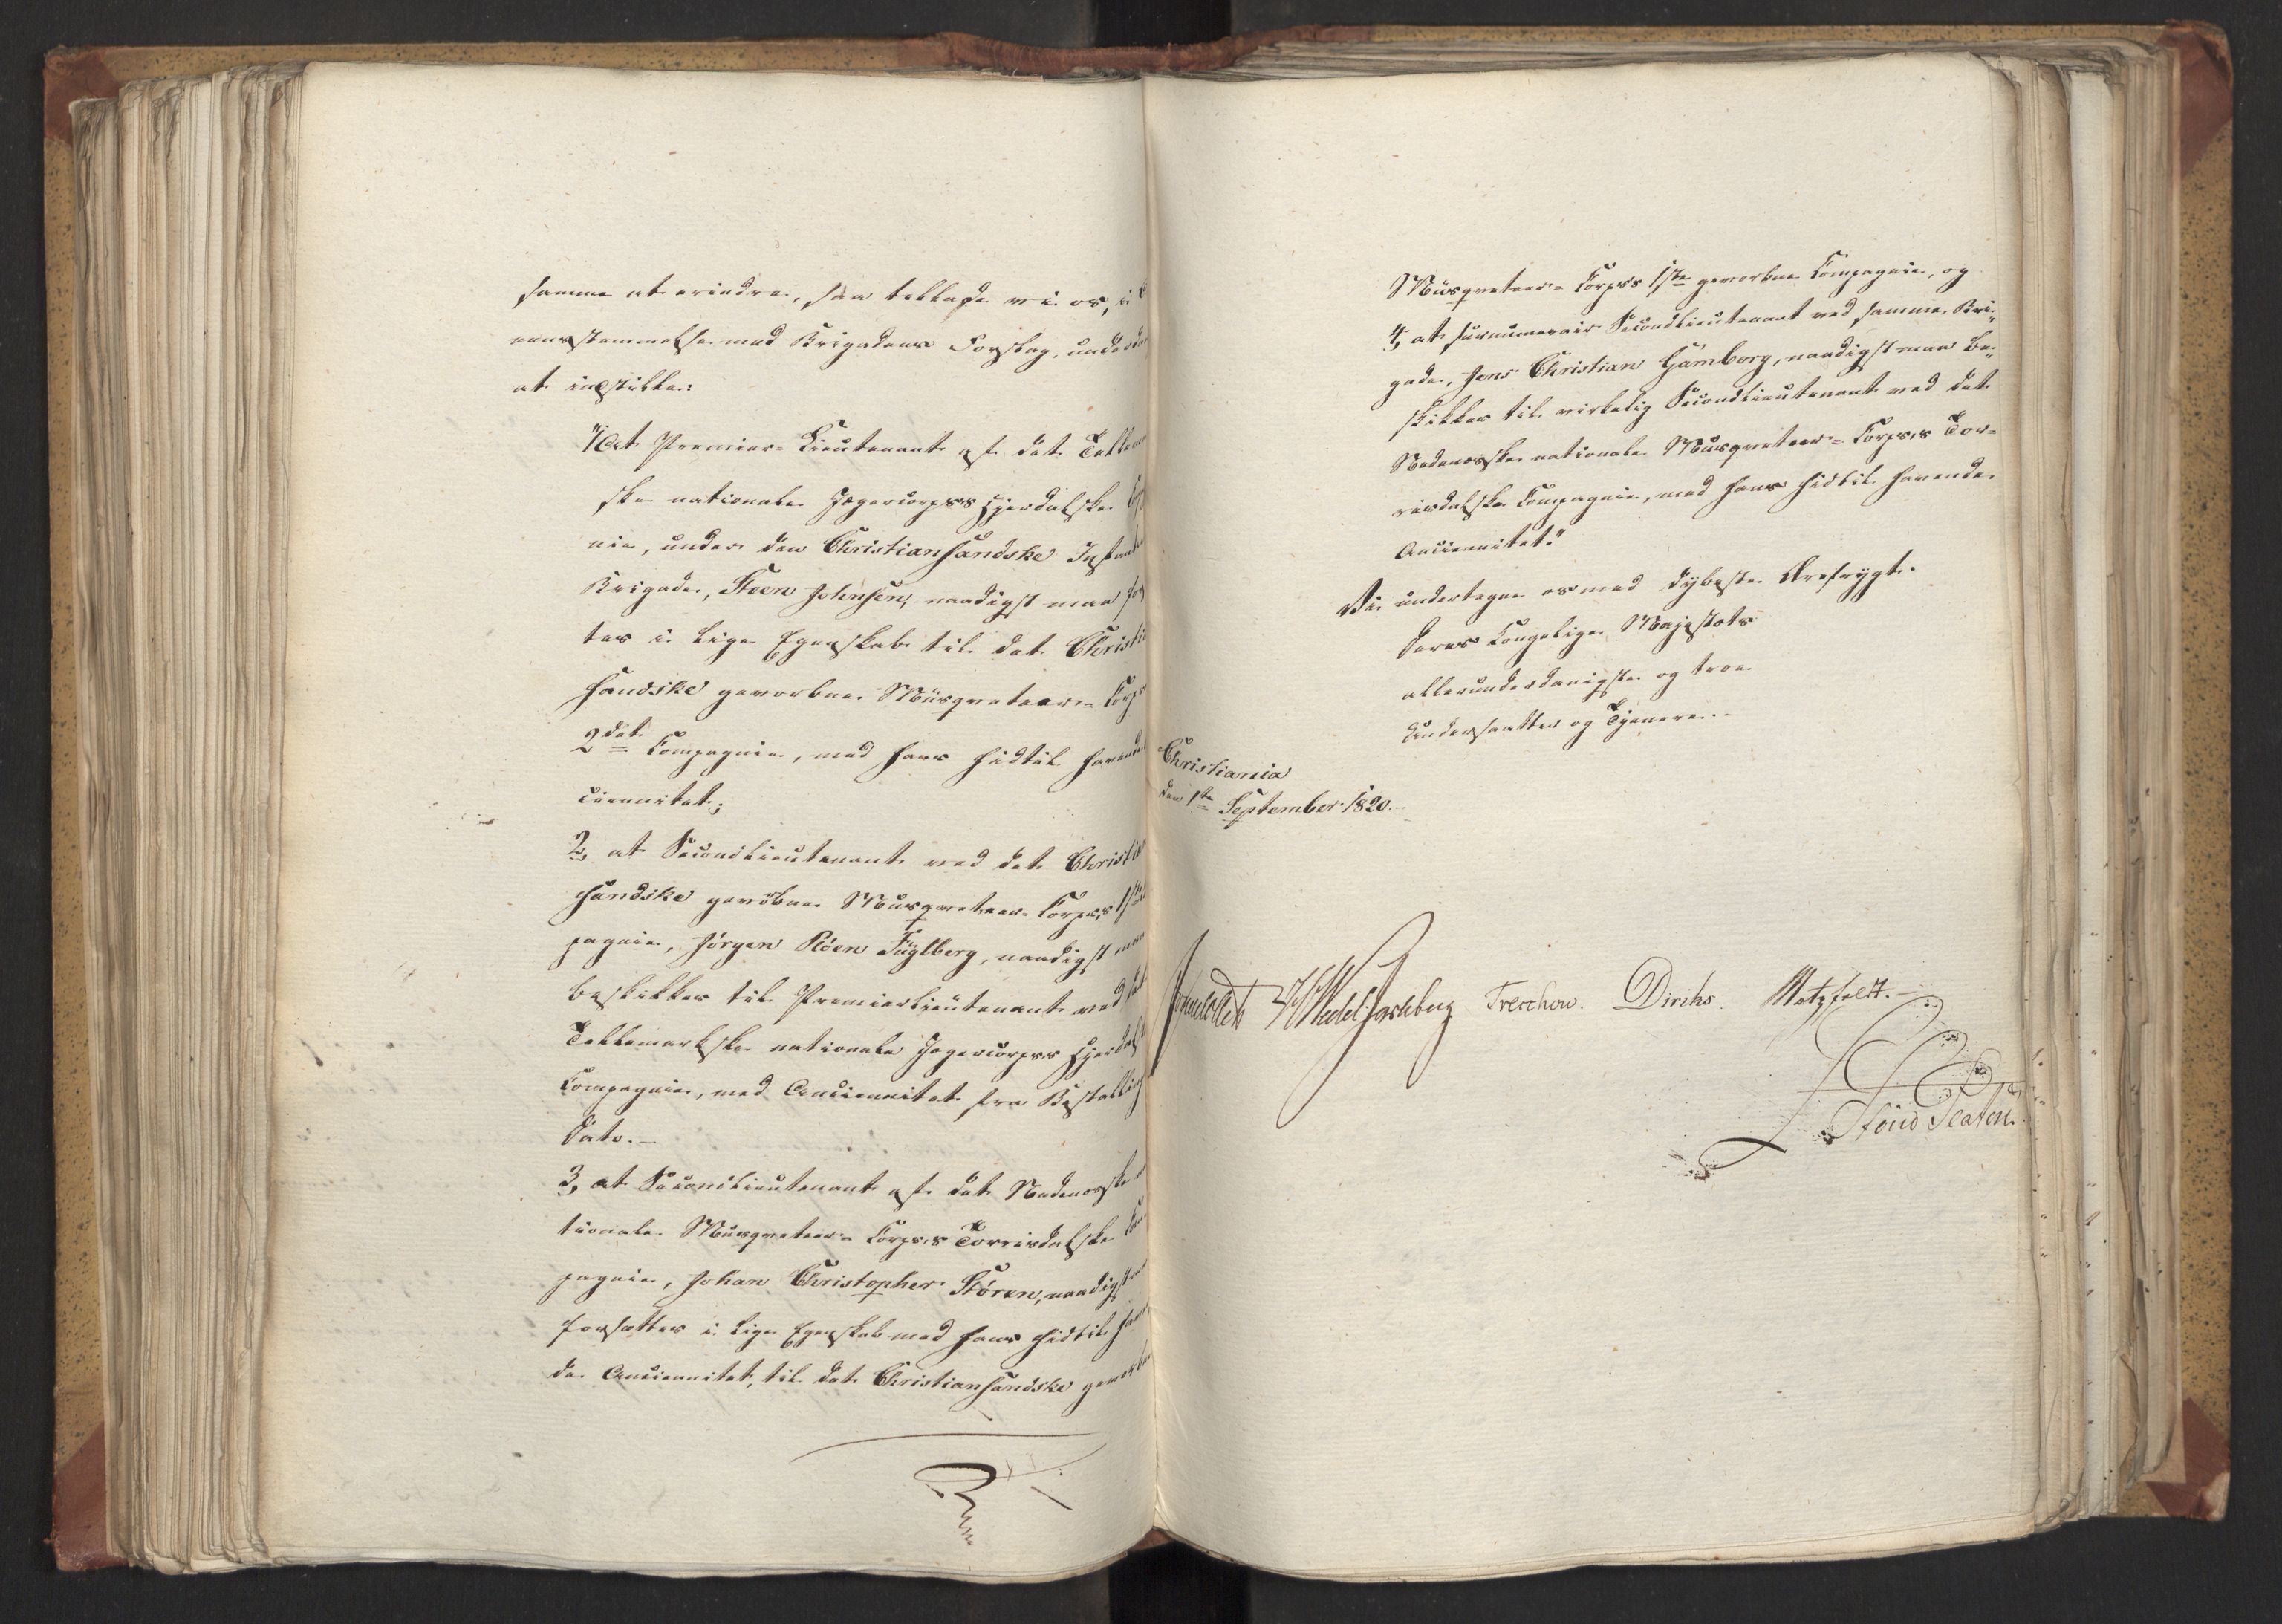 samme at erindre, saa tillade vi os, i
eensstemmelse med Brigadens Forslag, underd
at indstille:
"1, At Premier-Lieutenant af det Telle
ske nationale Jægercorpses Hjerdalske
nie, under den Christiansandske Infante
Brigade, Steen Johnsen, naadigst maa for
tes i lige Egenskab til det Christi
sandske gevorbne Musqueteer-Corps
2det Compagnie, med hans hidtil havende
ciennitet;
2, at Secondlieutenant ved det Christia
sandske gevorbne Musqueteer-Corpses 1ste
pagnie, Jörgen Röen Füglberg, naadigst maa
beskikkes til Premierlieutenant ved det
Tellemarkske nationale Jægercorpses Hjerdalsk
Compagnie, med Anciennitet fra Bestalling
Dato.-
3, at Secondlieutenant af det Nedenesske
tionale Musqueteer-Corpses Torrisdalske Com
pagnie, Johan Christopher Stören, naadigst
forsættes i lige Egenskab med hans hidtil
de Anciennitet, til det Christiansandske gevorb
Musqueteer-Corpses 1ste gevorbne Compagnie, og
4, at surnumerair Secondlieutenant ved samme Bri-
gade, Jens Christian Hamborg, naadigst maa be-
skikkes til virkelig Secondlieutenant ved det
Nedenesske nationale Musqueteer-Corpses Tor-
risdalske Compagnie, med hans hidtil havende
Anciennitet."
Vi undertegne os med dybeste Ærefrygt
Deres Kongelige Majestæts
allerunderdanigste og troe
Undersaatter og Tjenere.-
Christiania
den 1ste September 1820.-
Sommerfeldt HWedel Jarlsberg Treschow. Diriks. Motzfeldt.-